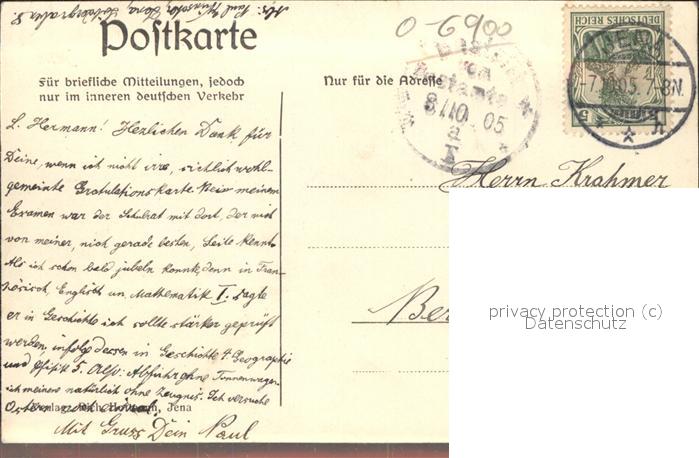 Abs: Paul
Postkarte
Für briefliche Mitteilungen, jedoch
nur im inneren deutschen Verkehr
Nur für die Adresse
0-6900
DEUTSCHES REICH
5
JENA
7.10.05. 7-8N.
Bestellt
vom
Postamte
8/10. 05
Herrn Krahmer
Ber
privacy protection (c)
Datenschutz
L. Hermann! Herzlichen Dank für
Deine, wenn ich nicht irre, sichtlich wohl-
gemeinte Gratulationskarte. Bei meinem
Examen war der Schulrat mit dort, der mich
von meiner, nich gerade besten, Seite kennt.
Als ich schon bald jubeln konnte, denn in Fran-
zösisch, Englisch un Mathematik I. sagte
er in Geschichte ich sollte stärker geprüft
werden, infolgedessen in Geschichte 4. Geographie
und 5. Also: Abfuhr ohne Tonnenwagen.
ich meinere natürlich ohne Zeugnis. Ich versuche
Ostern
Verlag Rich. Jena
Mit Gruss Dein Paul